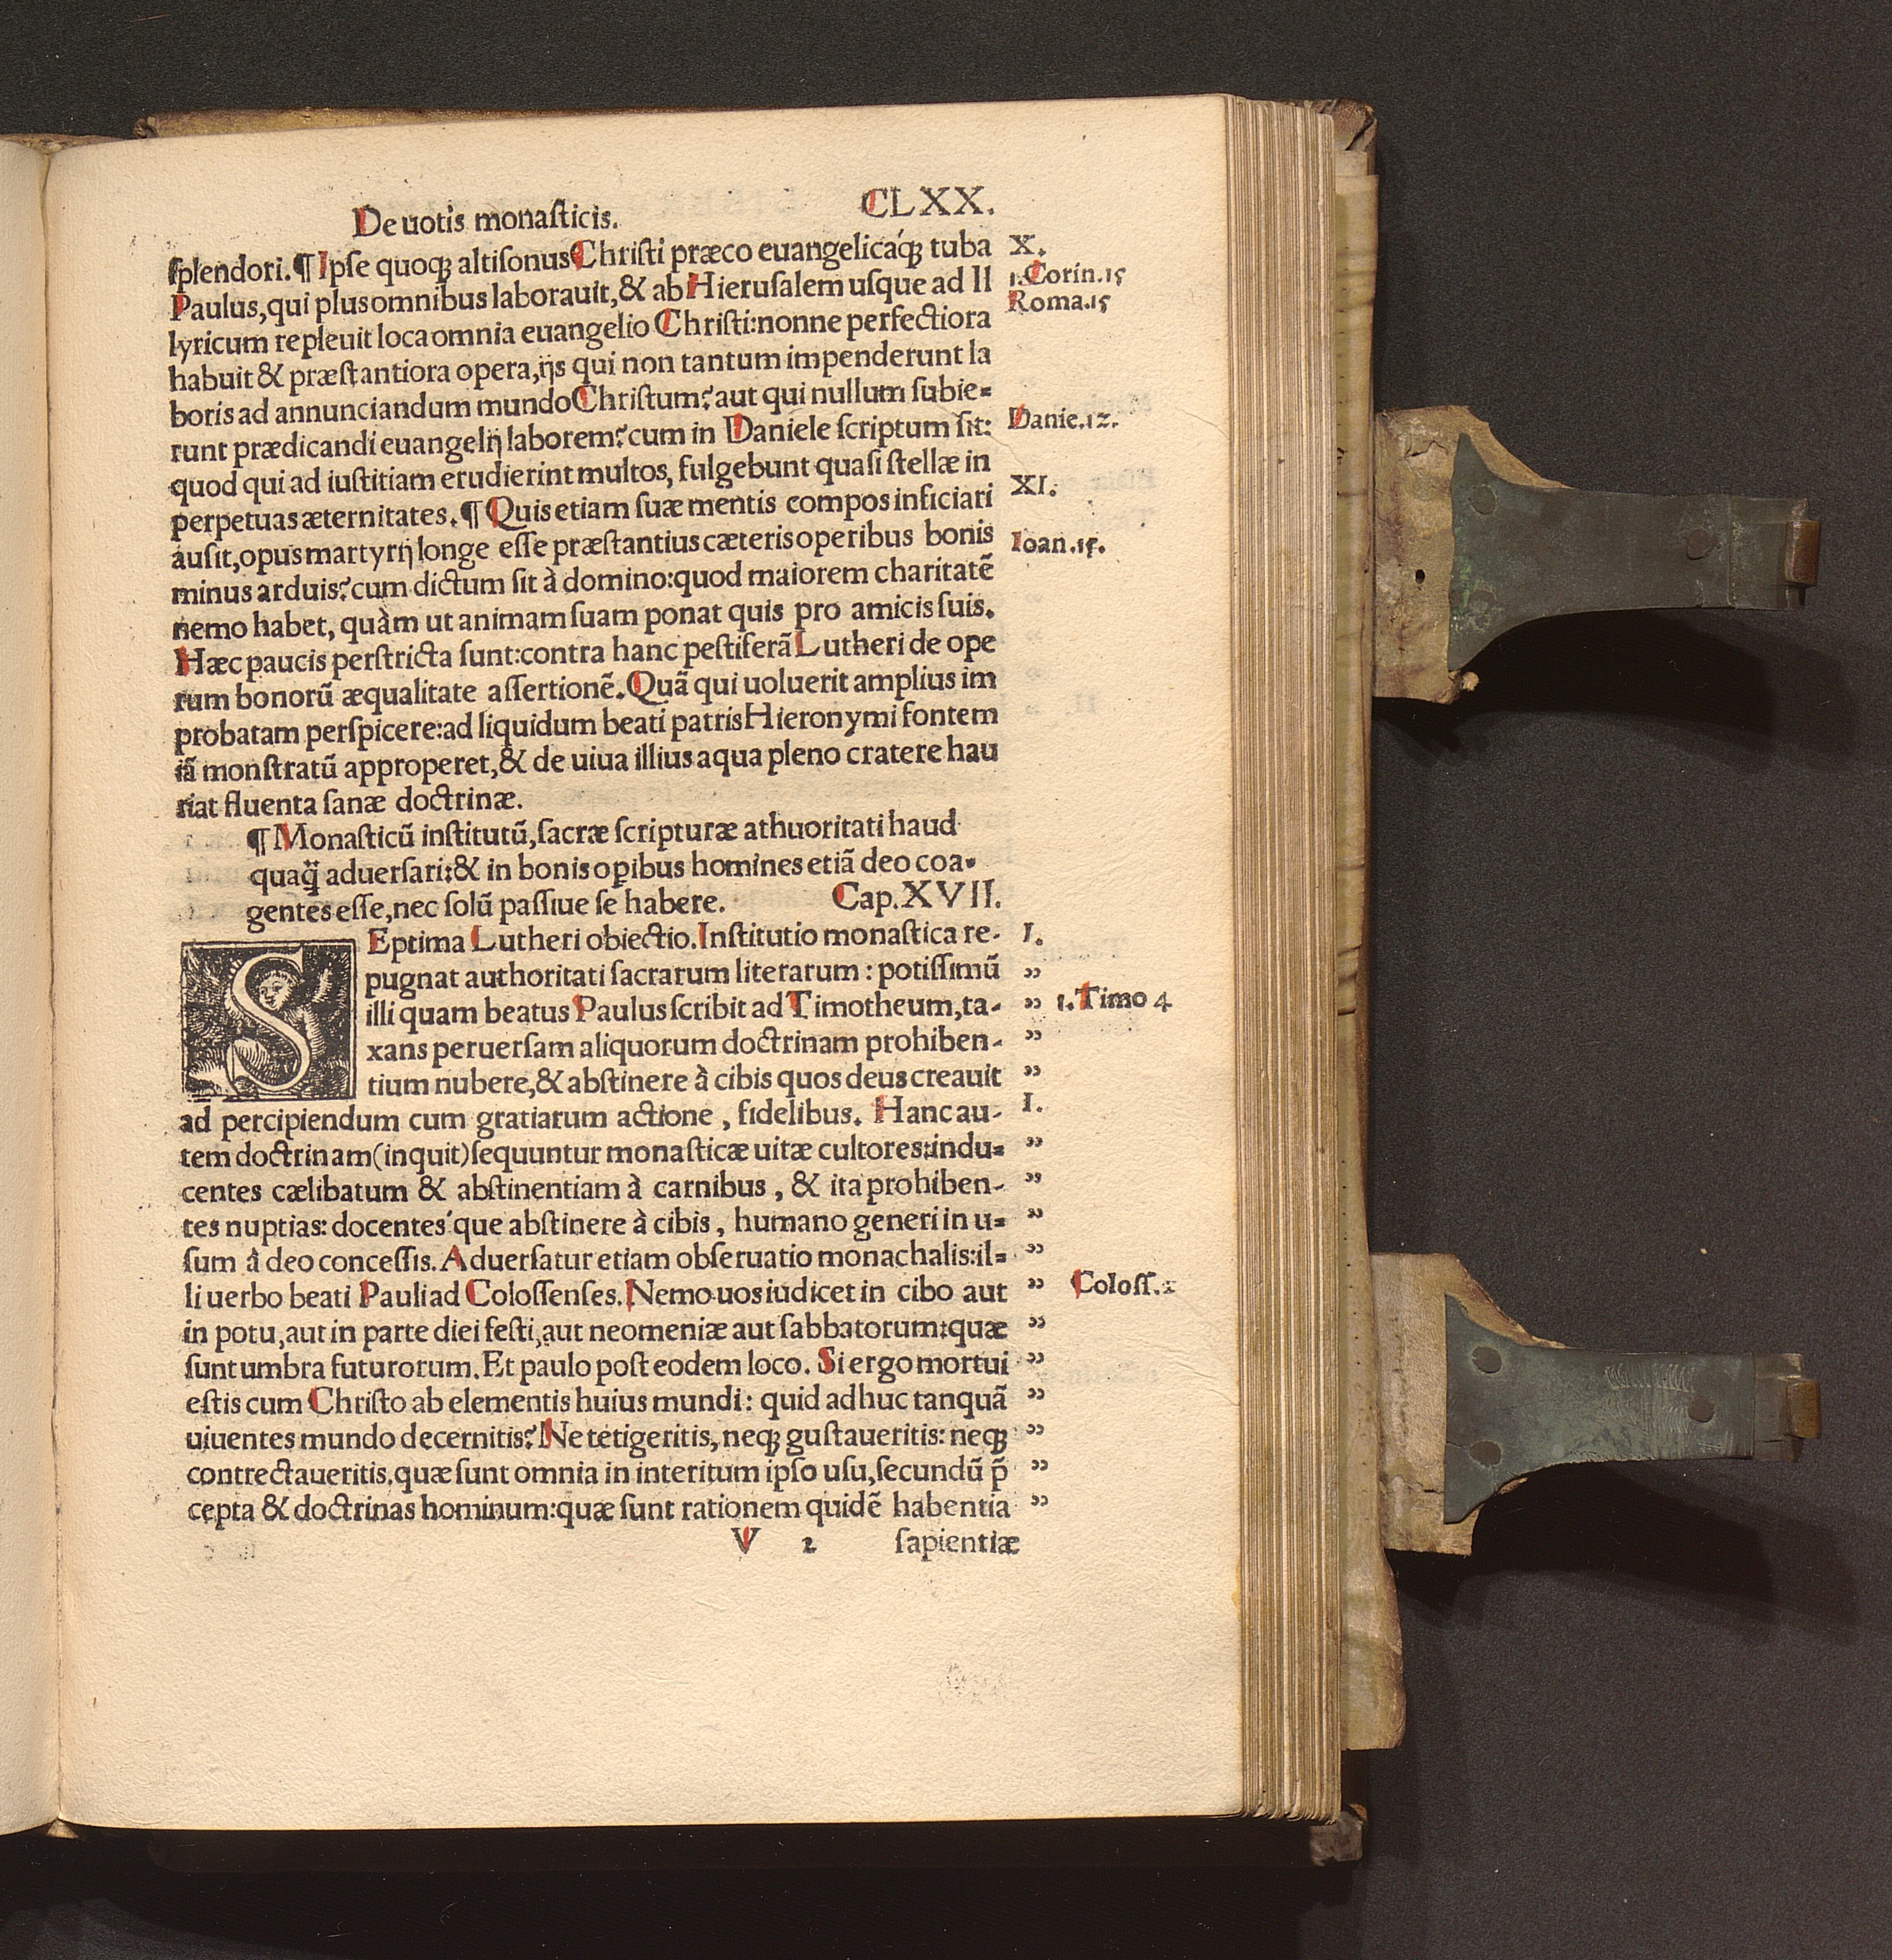 De uotis monaſticis. CLXX.
ſplendori. ¶ Ipſe quoqꝫ altiſonus Christi præco euangelicáqꝫ tuba X.
Paulus, qui plus omnibus laborauit, & ab Hieruſalem uſque ad Il 1. Corin. 15
lyricum repleuit loca omnia euangelio Chriſti: nonne perfectiora Roma. 15
habuit & præſtantiora opera, ijs qui non tantum impenderunt la
boris ad annunciandum mundo Chriſtum? aut qui nullum ſubie=
runt prædicandi euangelij laborem? cum in Daniele ſcriptum ſit: Danie. 12.
quod qui ad iuſtitiam erudierint multos, fulgebunt quaſi ſtellæ in
perpetuas æternitates. ¶ Quis etiam ſuæ mentis compos inficiari XI.
auſit, opus martyrij longe eſſe præſtantius cæteris operibus bonis
minus arduis? cum dictum ſit à domino: quod maiorem charitatẽ Ioan. 15.
nemo habet, quàm ut animam ſuam ponat quis pro amicis ſuis.
Hæc paucis perſtricta ſunt: contra hanc peſtiferã Lutheri de ope
rum bonorũ æqualitate aſſertionẽ. Quã qui uoluerit amplius im
probatam perſpicere: ad liquidum beati patris Hieronymi fontem
iã monſtratũ approperet, & de uiua illius aqua pleno cratere hau
riat fluenta ſanæ doctrinæ.
¶ Monaſticũ inſtitutũ, ſacræ ſcripturæ athuoritati haud
quaq̃ aduerſari: & in bonis oꝑibus homines etiã deo coa-
gentes eſſe, nec ſolũ paſſiue ſe habere. Cap. XVII.
SEptima Lutheri obiectio. Inſtitutio monaſtica re- I.
pugnat authoritati ſacrarum literarum: potiſſimũ ”
illi quam beatus Paulus ſcribit ad Timotheum, ta- ” 1. Timo 4
xans peruerſam aliquorum doctrinam prohiben- ”
tium nubere, & abſtinere à cibis quos deus creauit ”
ad percipiendum cum gratiarum actione, fidelibus. Hanc au- I.
tem doctrinam (inquit) ſequuntur monaſticæ uitæ cultores: indu= ”
centes cælibatum & abſtinentiam à carnibus, & ita prohiben- ”
tes nuptias: docentes'que abſtinere à cibis, humano generi in u= ”
ſum à deo conceſſis. Aduerſatur etiam obſeruatio monachalis: il= ”
li uerbo beati Pauli ad Coloſſenſes. Nemo uos iudicet in cibo aut ” Coloſſ. 2
in potu, aut in parte diei feſti, aut neomeniæ aut ſabbatorum: quæ ”
ſunt umbra futurorum. Et paulo poſt eodem loco. Si ergo mortui ”
eſtis cum Chriſto ab elementis huius mundi: quid adhuc tanquã ”
uiuentes mundo decernitis? Ne tetigeritis, neqꝫ guſtaueritis: neqꝫ ”
contrectaueritis. quæ ſunt omnia in interitum ipſo uſu, ſecundũ p̃ ”
cepta & doctrinas hominum: quæ ſunt rationem quidẽ habentia ”
V 2 ſapientiæ